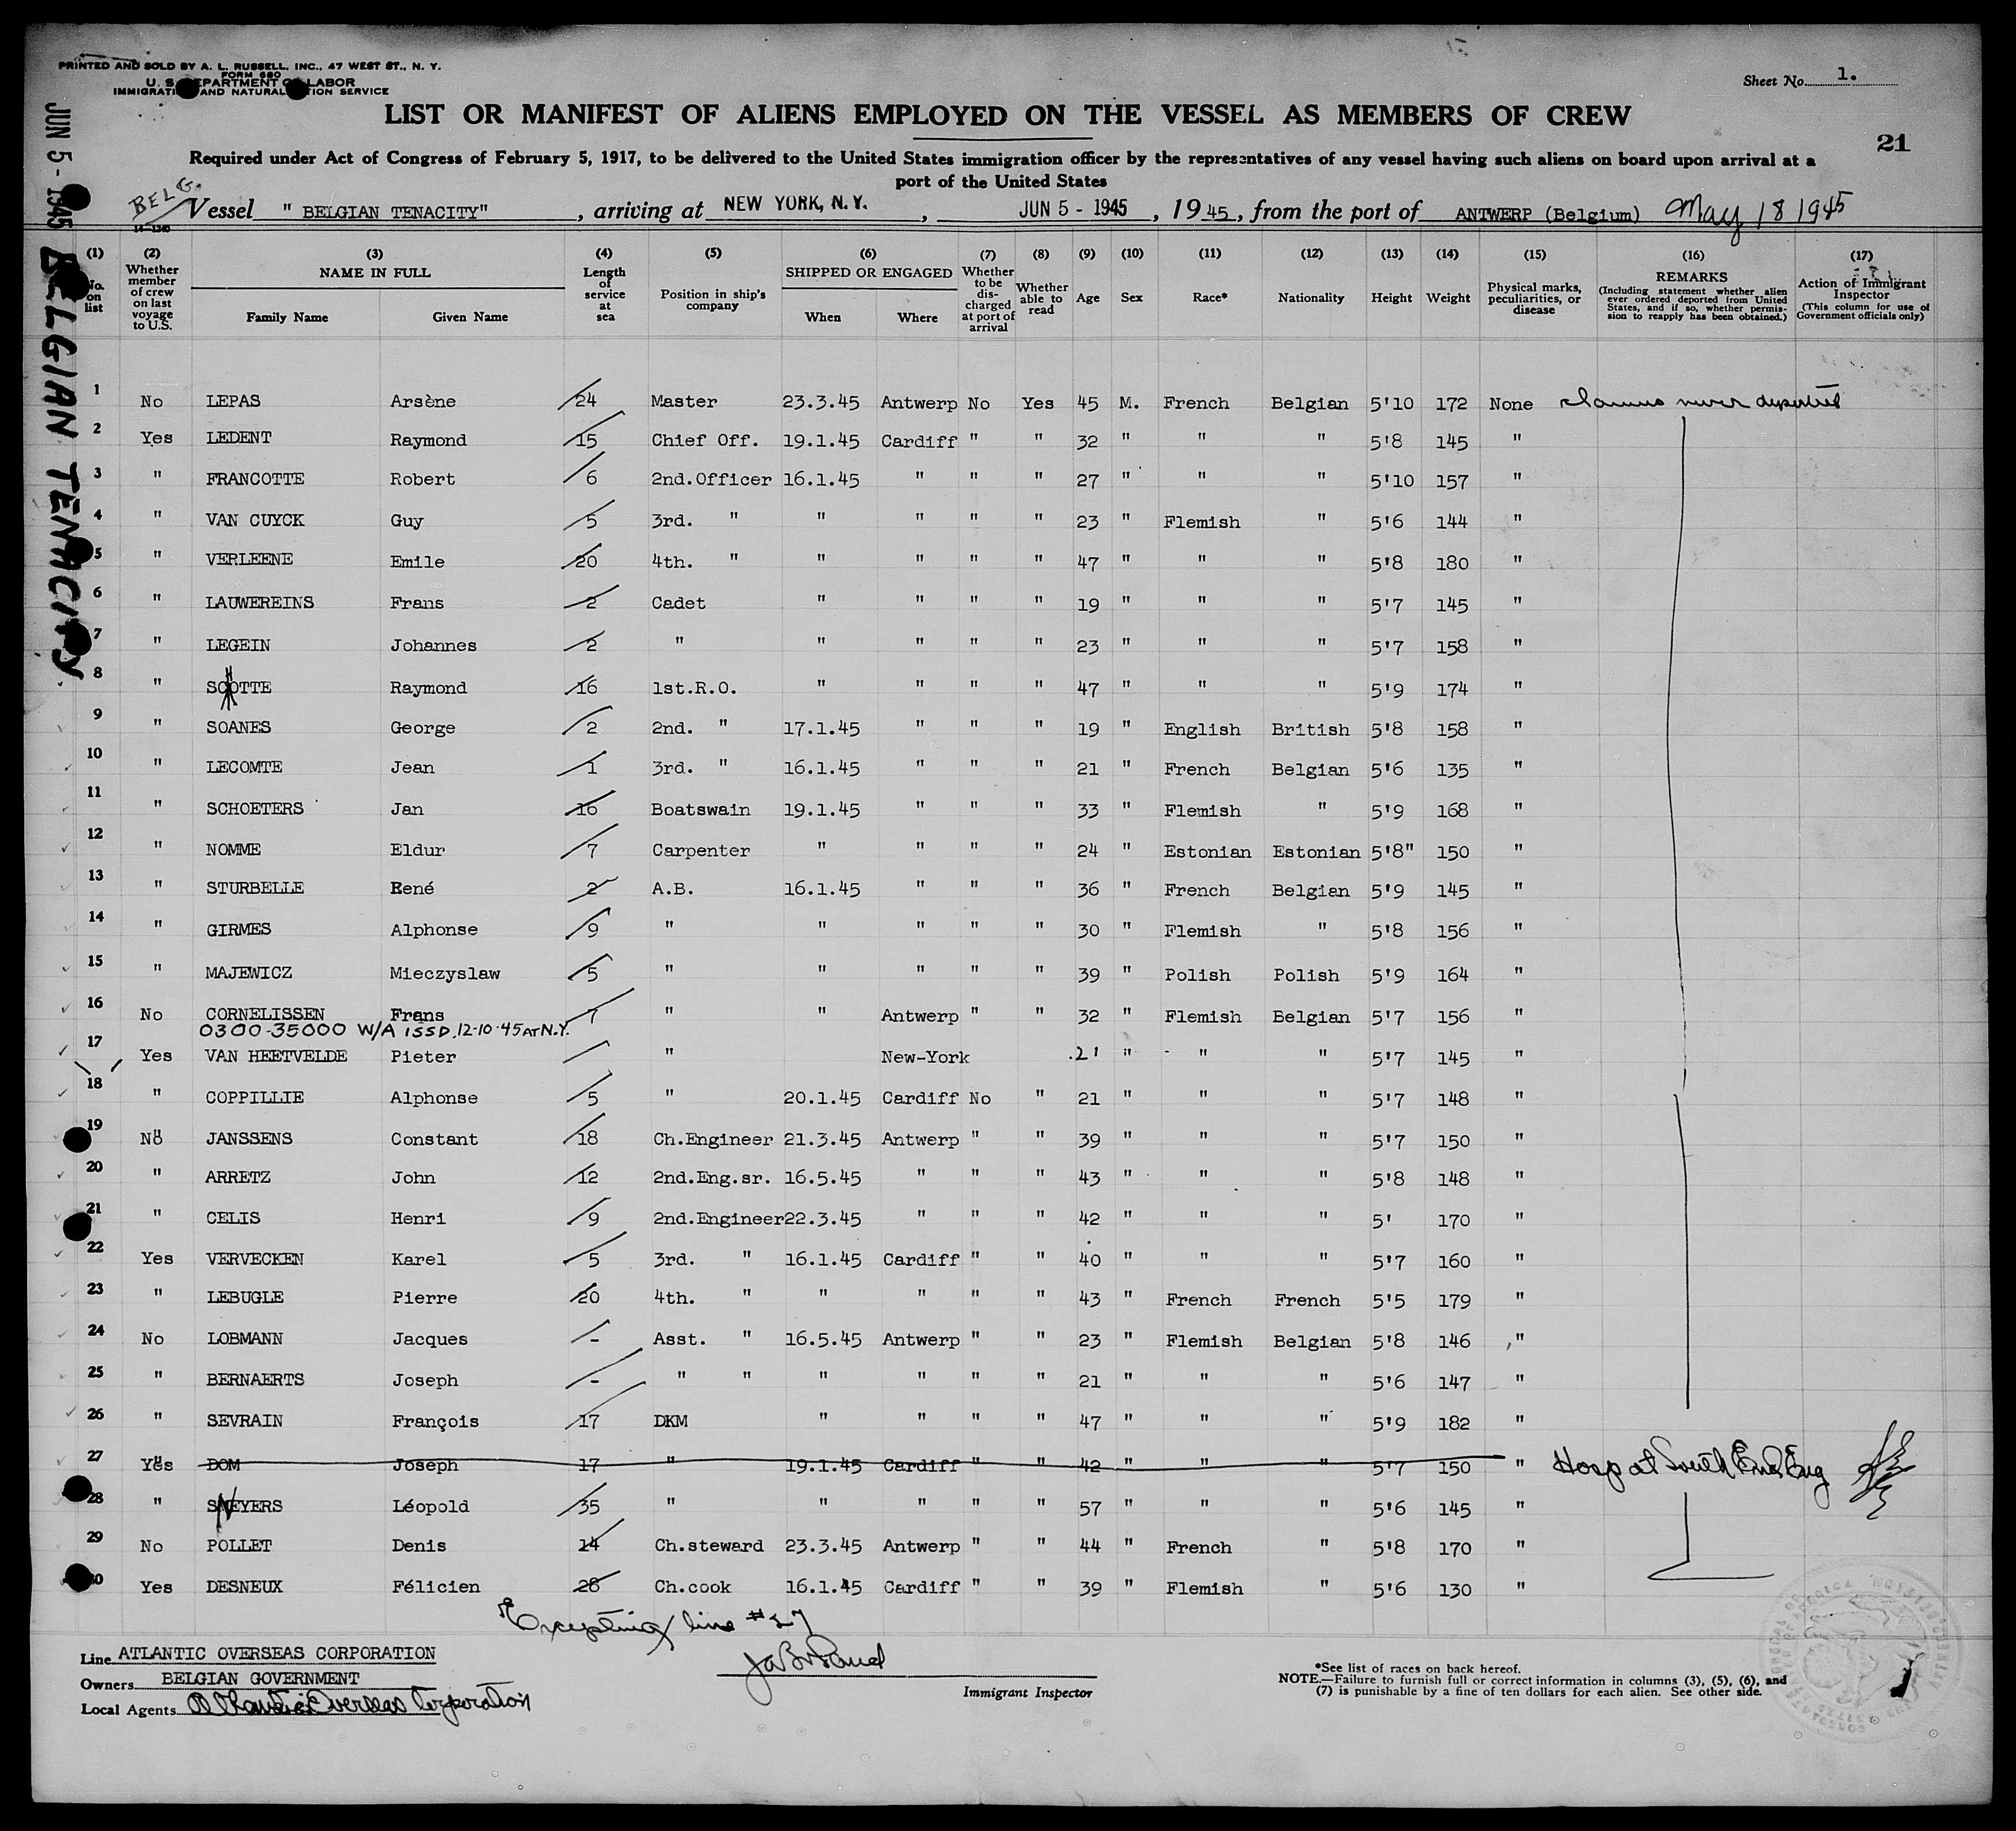 PRINTED AND SOLD BY A. L. RUSSELL, INC., 47 WEST ST., N. Y.
FORM 680
U. S. DEPARTMENT OF LABOR
IMMIGRATION AND NATURALIZATION SERVICE
Sheet No. 1.
LIST OR MANIFEST OF ALIENS EMPLOYED ON THE VESSEL AS MEMBERS OF CREW
21
Required under Act of Congress of February 5, 1917, to be delivered to the United States immigration officer by the representatives of any vessel having such aliens on board upon arrival at a
port of the United States
BELG.
Vessel "BELGIAN TENACITY", arriving at NEW YORK, N.Y., JUN 5 - 1945, 1945, from the port of ANTWERP (Belgium) May 18 1945
14-1240
JUN 5 - 1945 BELGIAN TENACITY
(1) No. on list
(2) Whether member of crew on last voyage to U.S.
(3) NAME IN FULL Family Name Given Name
(4) Length of service at sea
(5) Position in ship's company
(6) SHIPPED OR ENGAGED When Where
(7) Whether to be discharged at port of arrival
(8) Whether able to read
(9) Age
(10) Sex
(11) Race*
(12) Nationality
(13) Height
(14) Weight
(15) Physical marks, peculiarities, or disease
(16) REMARKS (Including statement whether alien ever ordered deported from United States, and if so, whether permission to reapply has been obtained.)
(17) Action of Immigrant Inspector (This column for use of Government officials only)
1 No LEPAS Arsène 24 Master 23.3.45 Antwerp No Yes 45 M. French Belgian 5'10 172 None claims never deported
2 Yes LEDENT Raymond 15 Chief Off. 19.1.45 Cardiff " " 32 " " " 5'8 145 "
3 " FRANCOTTE Robert 6 2nd.Officer 16.1.45 " " " 27 " " " 5'10 157 "
4 " VAN CUYCK Guy 5 3rd. " " " " " 23 " Flemish " 5'6 144 "
5 " VERLEENE Emile 20 4th. " " " " " 47 " " " 5'8 180 "
6 " LAUWEREINS Frans 2 Cadet " " " " 19 " " " 5'7 145 "
7 " LEGEIN Johannes 2 " " " " " 23 " " " 5'7 158 "
8 " SCOTTE Raymond 16 1st.R.O. " " " " 47 " " " 5'9 174 "
9 " SOANES George 2 2nd. " 17.1.45 " " " 19 " English British 5'8 158 "
10 " LECOMTE Jean 1 3rd. " 16.1.45 " " " 21 " French Belgian 5'6 135 "
11 " SCHOETERS Jan 16 Boatswain 19.1.45 " " " 33 " Flemish " 5'9 168 "
12 " NOMME Eldur 7 Carpenter " " " " 24 " Estonian Estonian 5'8" 150 "
13 " STURBELLE René 2 A.B. 16.1.45 " " " 36 " French Belgian 5'9 145 "
14 " GIRMES Alphonse 9 " " " " " 30 " Flemish " 5'8 156 "
15 " MAJEWICZ Mieczyslaw 5 " " " " " 39 " Polish Polish 5'9 164 "
16 No CORNELISSEN Frans 7 " " Antwerp " " 32 " Flemish Belgian 5'7 156 "
0300-35000 W/A ISSD. 12-10-45 AT N.Y.
17 Yes VAN HEETVELDE Pieter " New-York 21 " " " 5'7 145 "
18 " COPPILLIE Alphonse 5 " 20.1.45 Cardiff No " 21 " " " 5'7 148 "
19 No JANSSENS Constant 18 Ch.Engineer 21.3.45 Antwerp " " 39 " " " 5'7 150 "
20 " ARRETZ John 12 2nd.Eng.sr. 16.5.45 " " " 43 " " " 5'8 148 "
21 " CELIS Henri 9 2nd.Engineer 22.3.45 " " " 42 " " " 5' 170 "
22 Yes VERVECKEN Karel 5 3rd. " 16.1.45 Cardiff " " 40 " " " 5'7 160 "
23 " LEBUGLE Pierre 20 4th. " " " " " 43 " French French 5'5 179 "
24 No LOBMANN Jacques - Asst. " 16.5.45 Antwerp " " 23 " Flemish Belgian 5'8 146 "
25 " BERNAERTS Joseph - " " " " " " 21 " " " 5'6 147 "
26 " SEVRAIN François 17 DKM " " " " 47 " " " 5'9 182 "
27 Yes DOM Joseph 17 " 19.1.45 Cardiff " " 42 " " " 5'7 150 " Hosp at South End Eng
28 " SNEYERS Léopold 35 " " " " " 57 " " " 5'6 145 "
29 No POLLET Denis 14 Ch.steward 23.3.45 Antwerp " " 44 " French " 5'8 170 "
30 Yes DESNEUX Félicien 28 Ch.cook 16.1.45 Cardiff " " 39 " Flemish " 5'6 130 "
Excepting line #27
Line ATLANTIC OVERSEAS CORPORATION
Owners BELGIAN GOVERNMENT
Local Agents Atlantic Overseas Corporation
Immigrant Inspector
*See list of races on back hereof.
NOTE.—Failure to furnish full or correct information in columns (3), (5), (6), and
(7) is punishable by a fine of ten dollars for each alien. See other side.